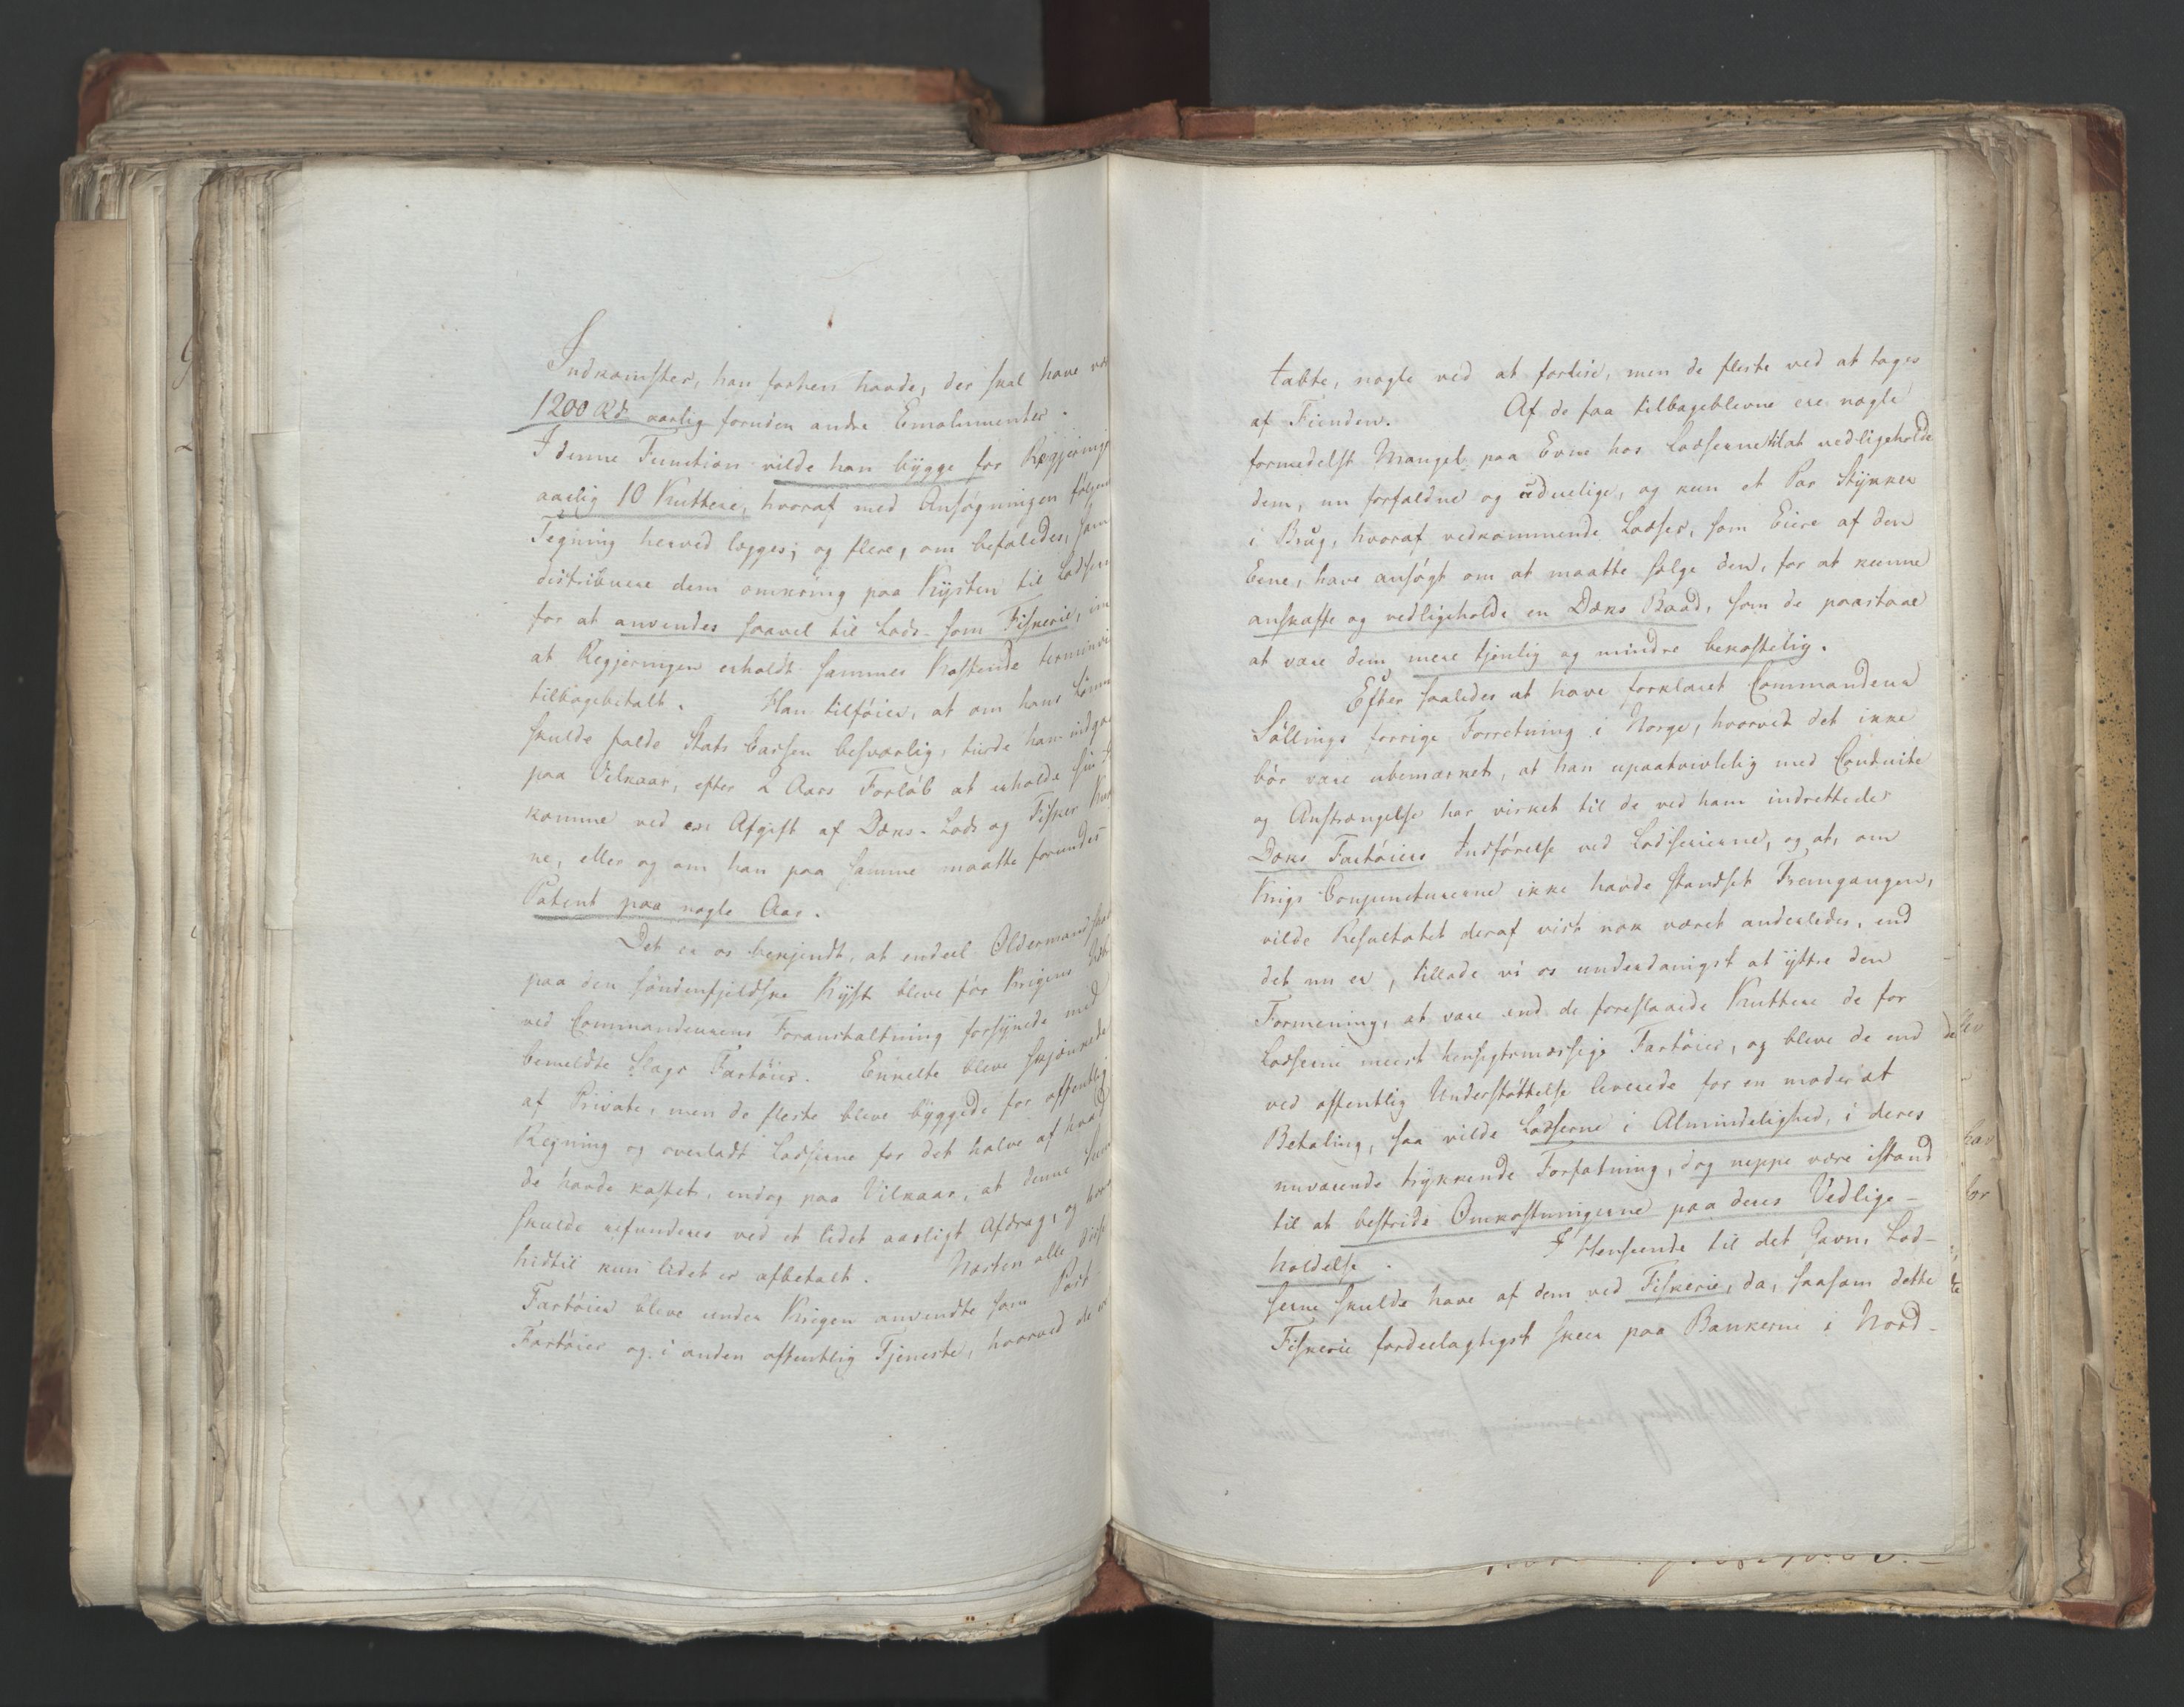 Indkomster, han forhen havde, der skal have
1200 Rd aarlig foruden andre Emolumenter.
I denne Function vilde han bÿgge for Regjerings
aarlig 10 Kuttere, hvoraf med Ansøgningen følgende
Tegning herved lægges; og flere, om befaledes, samt
distribuere dem omkring paa Kÿsten til Lodserne
for at anvendes saavel til Lods- som Fiskerie,
at Regjeringen erholdt sammes Kostende terminviis
tilbagebetalt. Han tilføier, at om hans Lønning
skulde falde Stats Cassen besværlig, turde han indgaae
paa Vilkaar, efter 2 Aars Forløb at erholde sin
komme ved en Afgift af Dæks-Lods og Fisker
ne, eller og om han paa samme maatte forundes
Patent paa nogle Aar.
Det er os bekjendt, at endeel Oldermandskaber
paa den søndenfjeldske Kÿst bleve før Krigens
ved Commandeurens Foranstaltning forsÿnede med
bemeldte Slags Fartøier. Enkelte bleve skjænkede
af Private, men de fleste bleve bÿggede for offentlig
Regning og overladt Lodserne for det halve af hvad
de havde kostet, endog paa Vilkaar, at denne Sum
skulde refunderes ved et lidet aarligt Afdrag, og
hidtil kun lidet er afbetalt. Næsten alle disse
Fartøier bleve under Krigen anvendte som Post-
Fartøier og i anden offentlig Tjeneste, hvorved de
tabte, nogle ved at forlise, men de fleste ved at tages
af Fienden. Af de faa tilbageblevne ere nogle
formedelst Mangel paa Evne hos Lodserne til at vedligeholde
dem, nu forfaldne og uduelige, og kun et Par Stÿkker
i Brug, hvoraf vedkommende Lodser, som Eiere af den
Eene, have ansøgt om at maatte sælge den, for at kunne
anskaffe og vedligeholde en Dæks Baad, som de paastaae
at være dem mere tjenlig og mindre bekostelig.
Efter saaledes at have forklaret Commandeur
Søllings forrige Forretning i Norge, hvorved det ikke
bør være ubemærket, at han upaatvivlelig med Conduite
og Anstrængelse har virket til de ved ham indrettede
Dæks Fartøiers Indførelse ved Lodserierne, og at, om
Krigs Conjuncturerne ikke havde standset Fremgangen,
vilde Resultatet deraf vist nok været anderledes, end
det nu er, tillade vi os underdanigst at ÿttre den
Formening, at vare end de foreslaaede Kuttere de for
Lodserne meest hensigtsmæssige Fartøier, og bleve de end
ved offentlig Understøttelse leverede for en moderat
Betaling, saa vilde Lodserne i Almindelighed, i deres
nuværende trÿkkende Forfatning, dog neppe være istand
til at bestride Omkostningerne paa deres Vedlige-
holdelse. I Henseende til det Gavn, Lod-
serne skulde have af dem ved Fiskerie, da, saasom dette
Fiskerie fordeelagtigst skeer paa Bankerne i Nord-